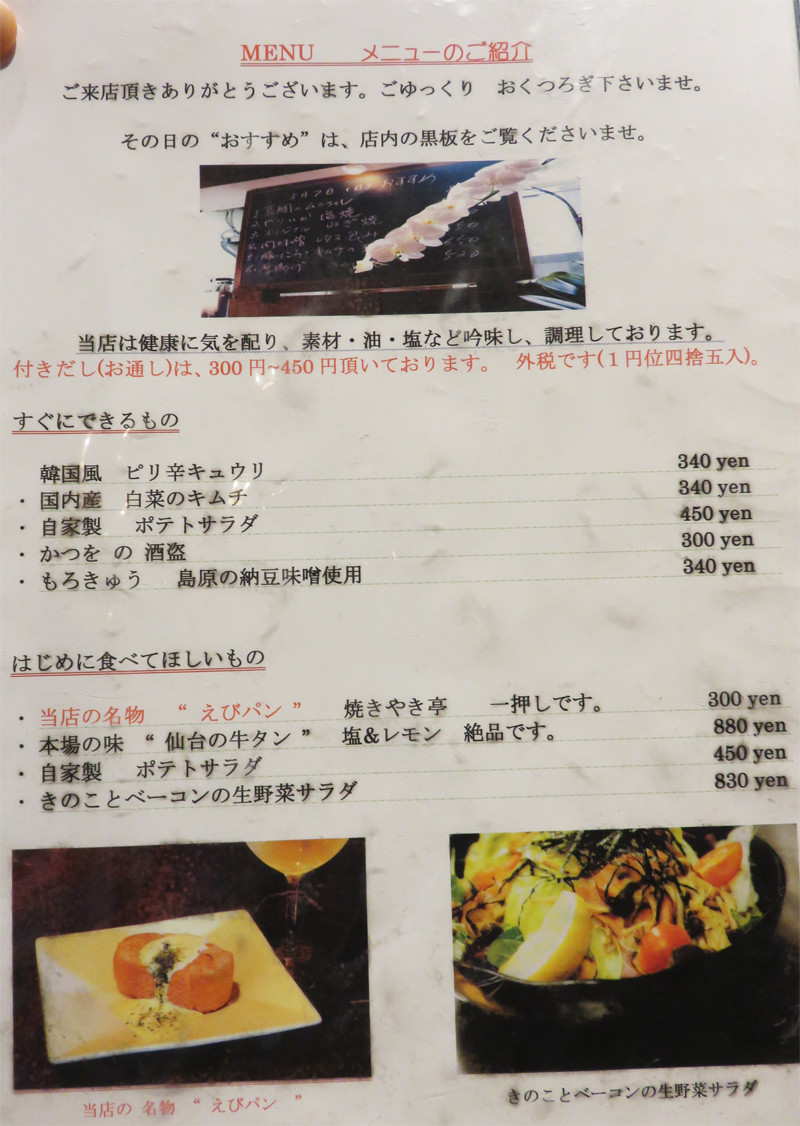 MENU メニューのご紹介
ご来店頂きありがとうございます。ごゆっくり おくつろぎ下さいませ。
その日の“おすすめ”は、店内の黒板をご覧くださいませ。
おすすめ
当店は健康に気を配り、素材・油・塩など吟味し、調理しております。
付きだし(お通し)は、300円~450円頂いております。 外税です(1円位四捨五入)。
すぐにできるもの
韓国風 ピリ辛キュウリ 340 yen
・ 国内産 白菜のキムチ 340 yen
・ 自家製 ポテトサラダ 450 yen
・ かつを の 酒盗 300 yen
・ もろきゅう 島原の納豆味噌使用 340 yen
はじめに食べてほしいもの
・ 当店の名物 “ えびパン ” 焼きやき亭 一押しです。 300 yen
・ 本場の味 “ 仙台の牛タン ” 塩&レモン 絶品です。 880 yen
・ 自家製 ポテトサラダ 450 yen
・ きのことベーコンの生野菜サラダ 830 yen
当店の 名物 “ えびパン ”
きのことベーコンの生野菜サラダ